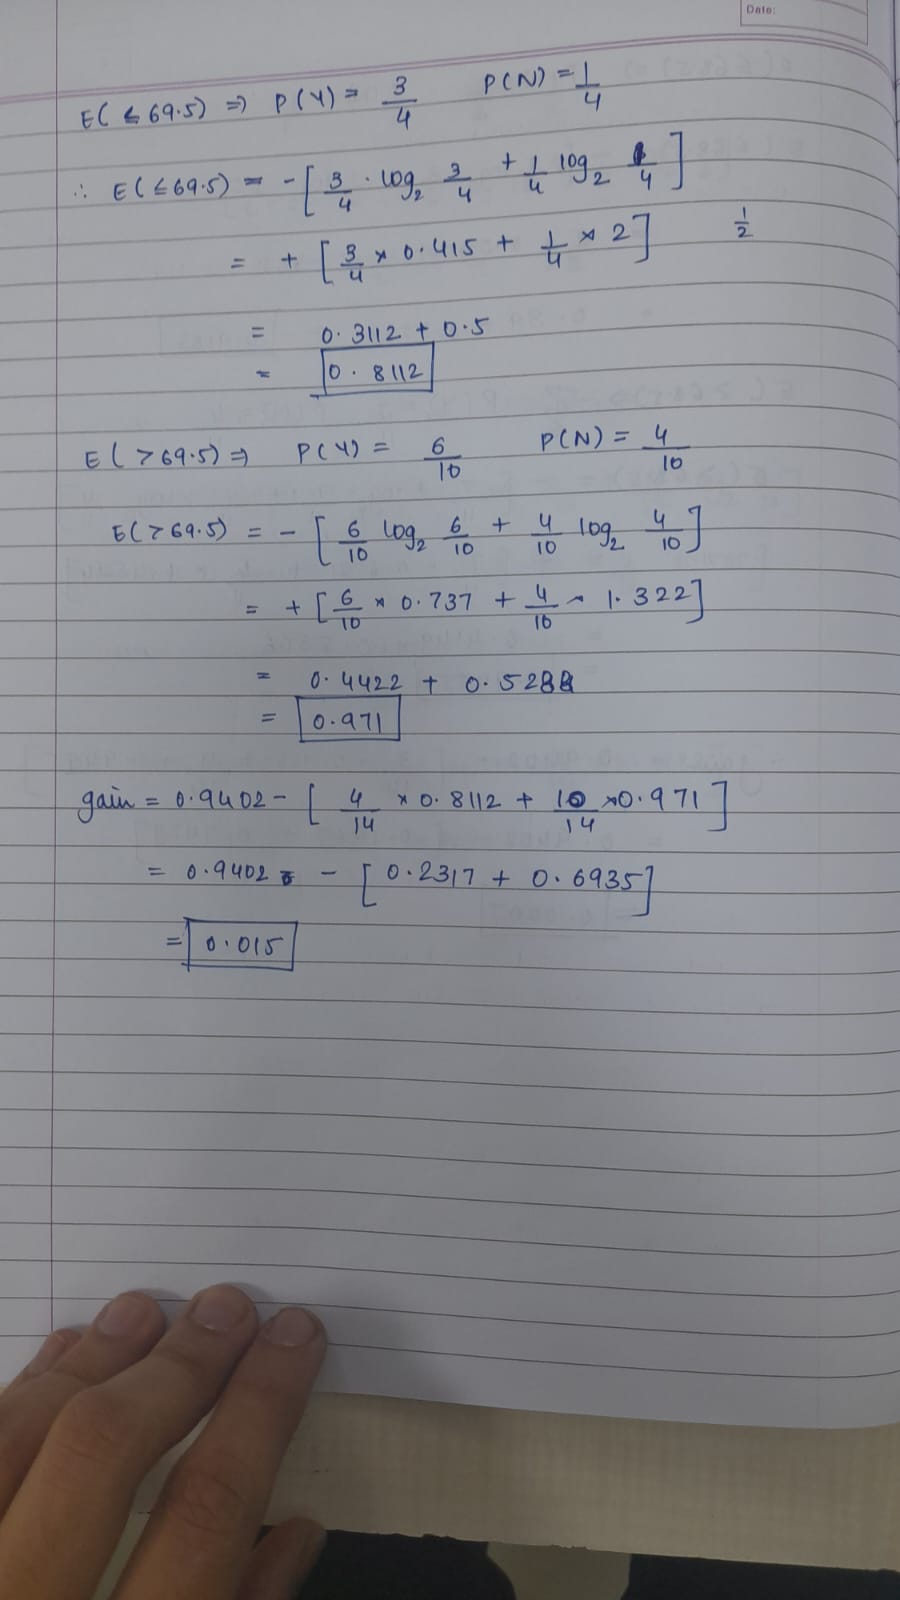 Date:
E(≤69.5) => P(Y) = 3/4 P(N) = 1/4
∴ E(≤69.5) = -[3/4 . log₂ 3/4 + 1/4 log₂ 1/4]
= +[3/4 × 0.415 + 1/4 × 2] 1/2
= 0.3112 + 0.5
= 0.8112
E(>69.5) => P(Y) = 6/10 P(N) = 4/10
E(>69.5) = -[6/10 log₂ 6/10 + 4/10 log₂ 4/10]
= +[6/10 × 0.737 + 4/10 × 1.322]
= 0.4422 + 0.5288
= 0.971
gain = 0.9402 - [4/14 × 0.8112 + 10/14 × 0.971]
= 0.9402 - [0.2317 + 0.6935]
= 0.015